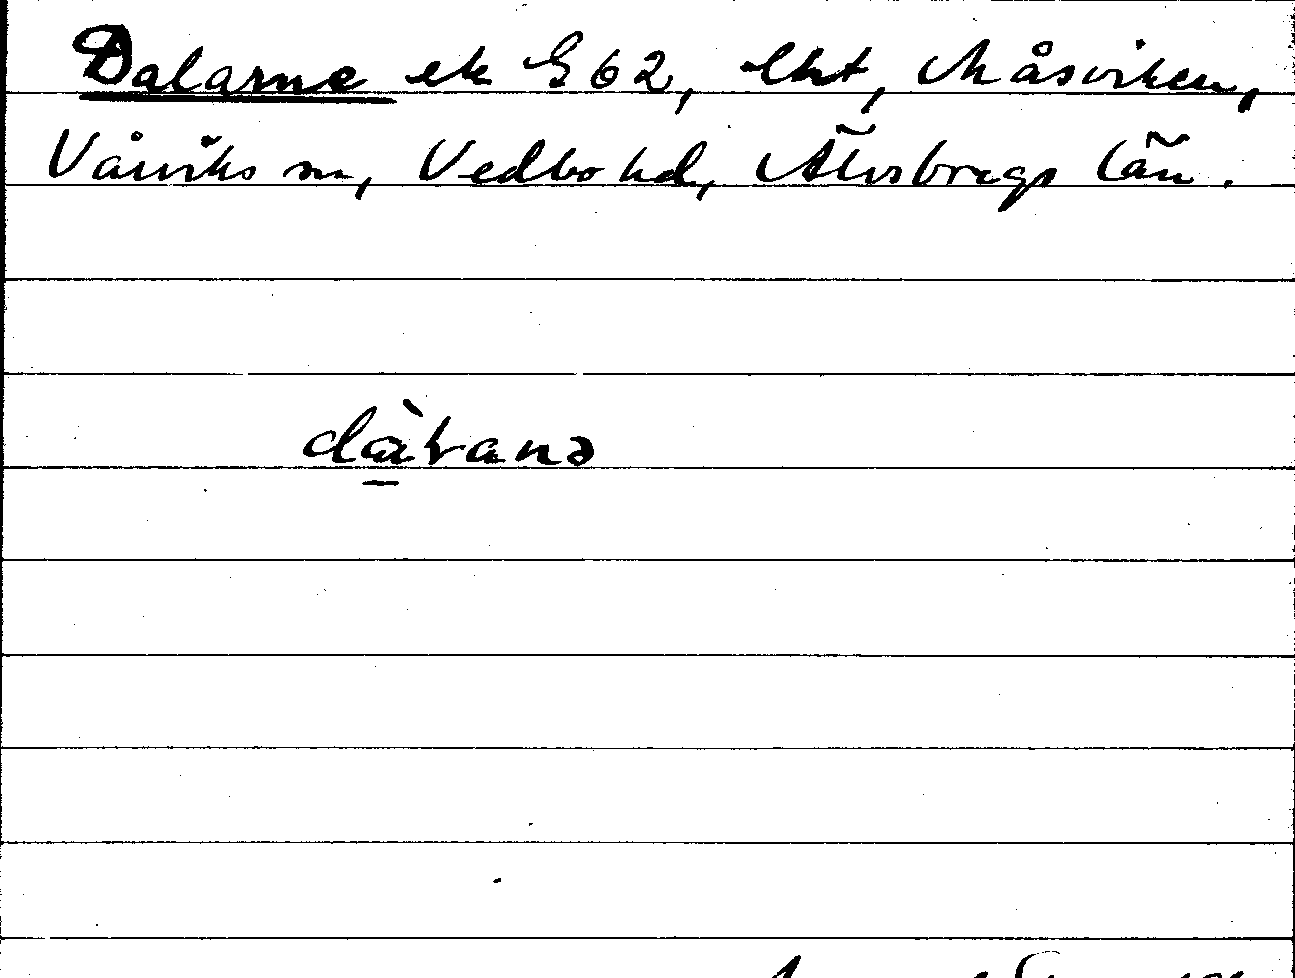 Dalarne ek E 62, lht, Måsviken,
Vårviks sn, Vedbo hd, Älvsborgs län.
dàrana